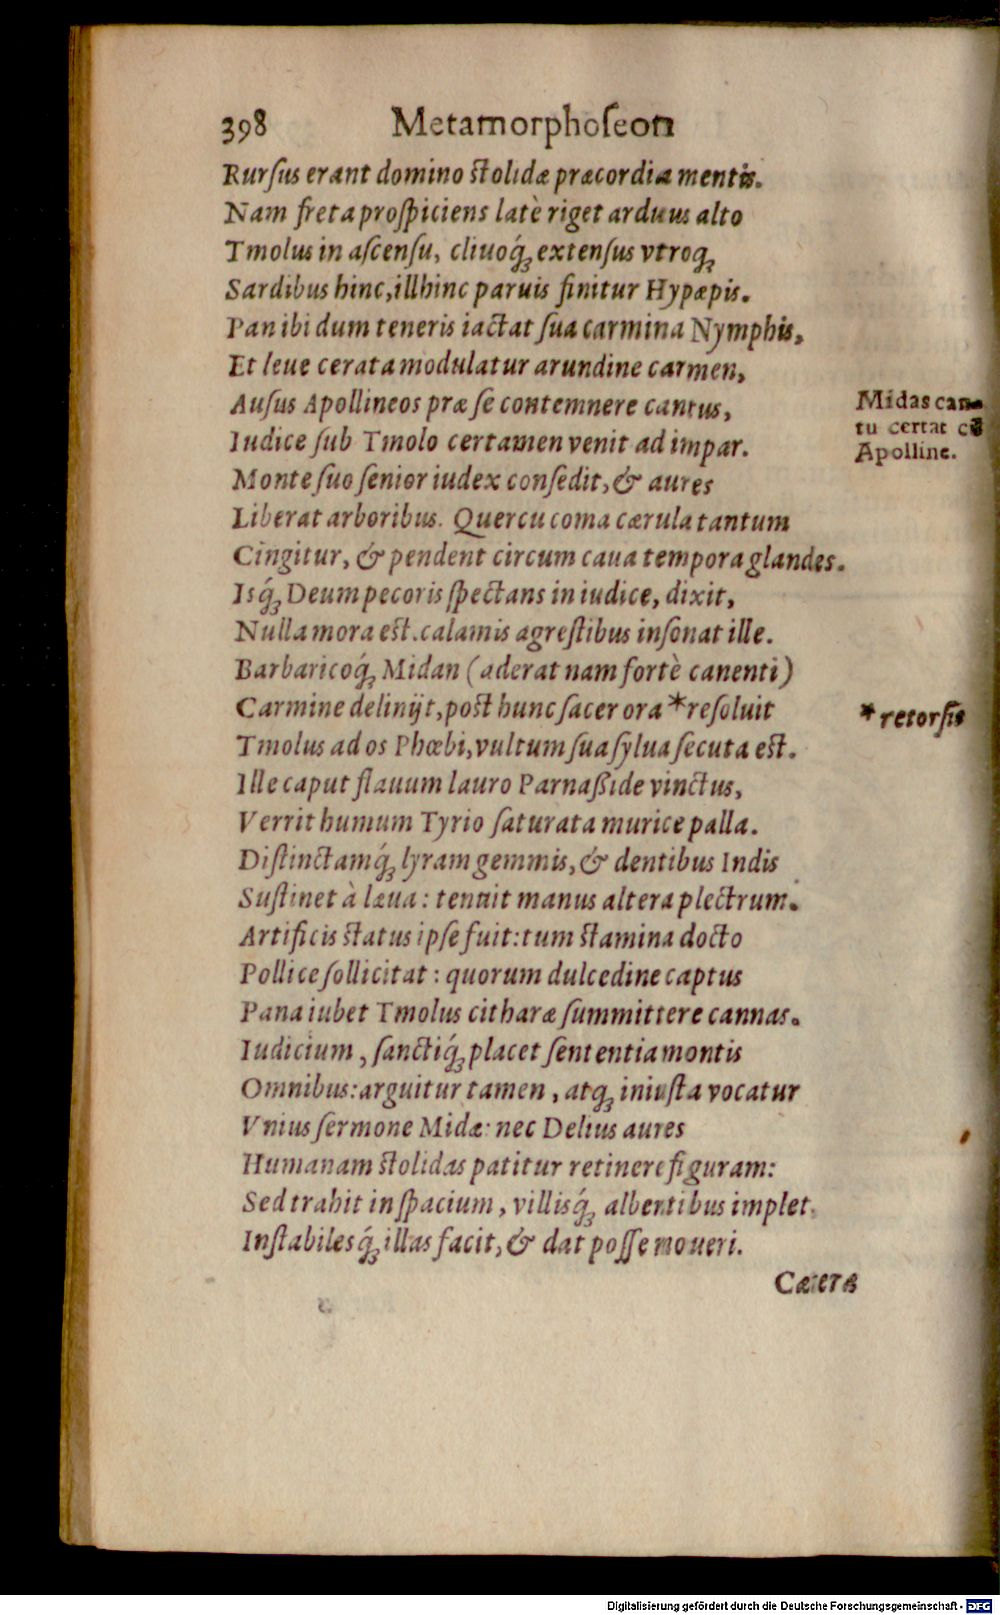 398 Metamorphoſeon
Rurſus erant domino ſtolidæ præcordia mentis.
Nam freta proſpiciens latè riget arduus alto
Tmolus in aſcenſu, cliuoq́ꝫ extenſus vtroqꝫ
Sardibus hinc, illhinc paruis finitur Hypæpis.
Pan ibi dum teneris iactat ſua carmina Nymphis,
Et leue cerata modulatur arundine carmen,
Auſus Apollineos præ ſe contemnere cantus,
Iudice ſub Tmolo certamen venit ad impar.
Monte ſuo ſenior iudex conſedit, & aures
Liberat arboribus. Quercu coma cærula tantum
Cingitur, & pendent circum caua tempora glandes.
Isq́ꝫ Deum pecoris ſpectans in iudice, dixit,
Nulla mora eſt. calamis agreſtibus inſonat ille.
Barbaricoq́ꝫ Midan (aderat nam fortè canenti)
Carmine delinijt, poſt hunc ſacer ora *reſoluit
Tmolus ad os Phœbi, vultum ſua ſylua ſecuta eſt.
Ille caput flauum lauro Parnaßide vinctus,
Verrit humum Tyrio ſaturata murice palla.
Diſtinctamq́ꝫ lyram gemmis, & dentibus Indis
Suſtinet à læua: tenuit manus altera plectrum.
Artificis ſtatus ipſe fuit: tum ſtamina docto
Pollice ſollicitat: quorum dulcedine captus
Pana iubet Tmolus citharæ ſummittere cannas.
Iudicium, ſanctiq́ꝫ placet ſententia montis
Omnibus: arguitur tamen, atqꝫ iniuſta vocatur
Vnius ſermone Midæ: nec Delius aures
Humanam ſtolidas patitur retinere figuram:
Sed trahit in ſpacium, villisq́ꝫ albentibus implet.
Inſtabilesq́ꝫ illas facit, & dat poſſe moueri.
Cætera
Midas can-
tu certat cū
Apolline.
*retorſit
Digitalisierung gefördert durch die Deutsche Forschungsgemeinschaft - DFG